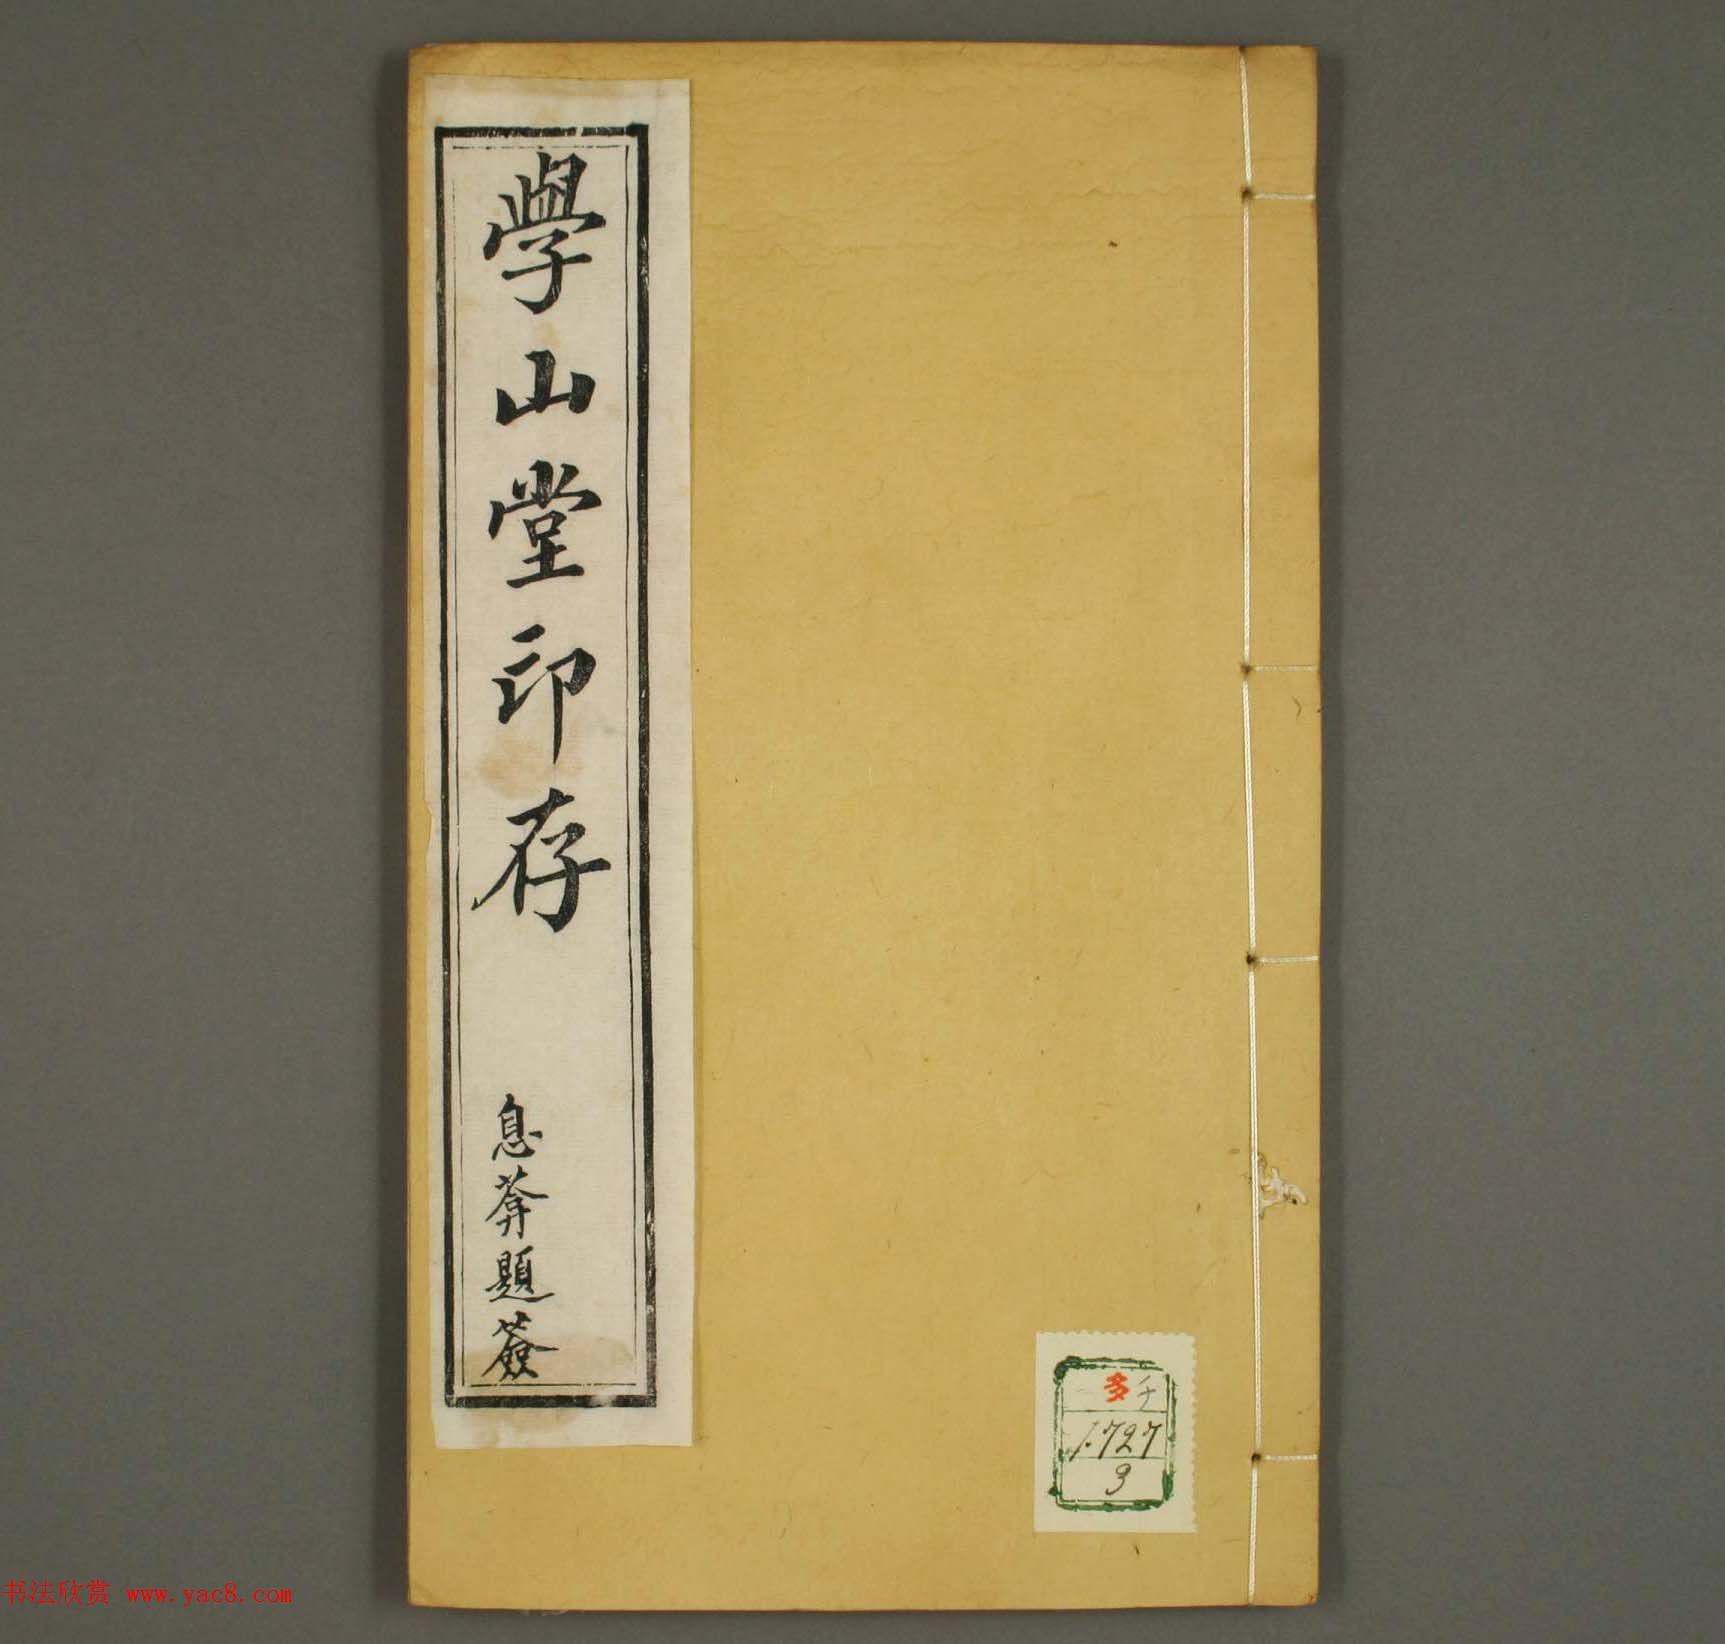 學山堂印存
息莾題簽
多 チ
1.727
3
书法欣赏 www.yac8.com